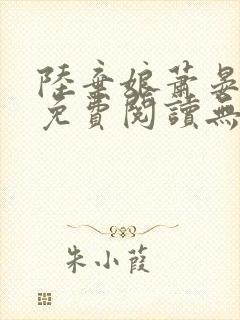 陸棄娘蕭晏
免費閱讀無
朱小葭